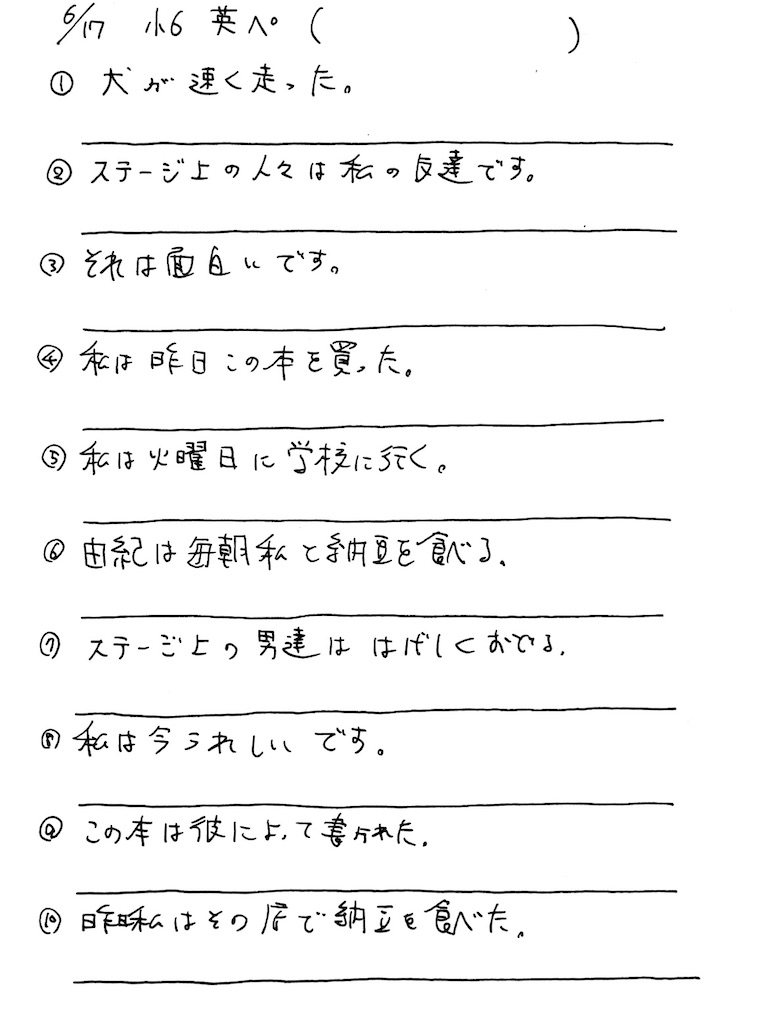 6/17 小6 英ペ（　　　　）
① 犬が速く走った。
② ステージ上の人々は私の友達です。
③ それは面白いです。
④ 私は昨日この本を買った。
⑤ 私は火曜日に学校に行く。
⑥ 由紀は毎朝私と納豆を食べる。
⑦ ステージ上の男達ははげしくおどる。
⑧ 私は今うれしいです。
⑨ この本は彼によって書かれた。
⑩ 昨日私はその店で納豆を食べた。